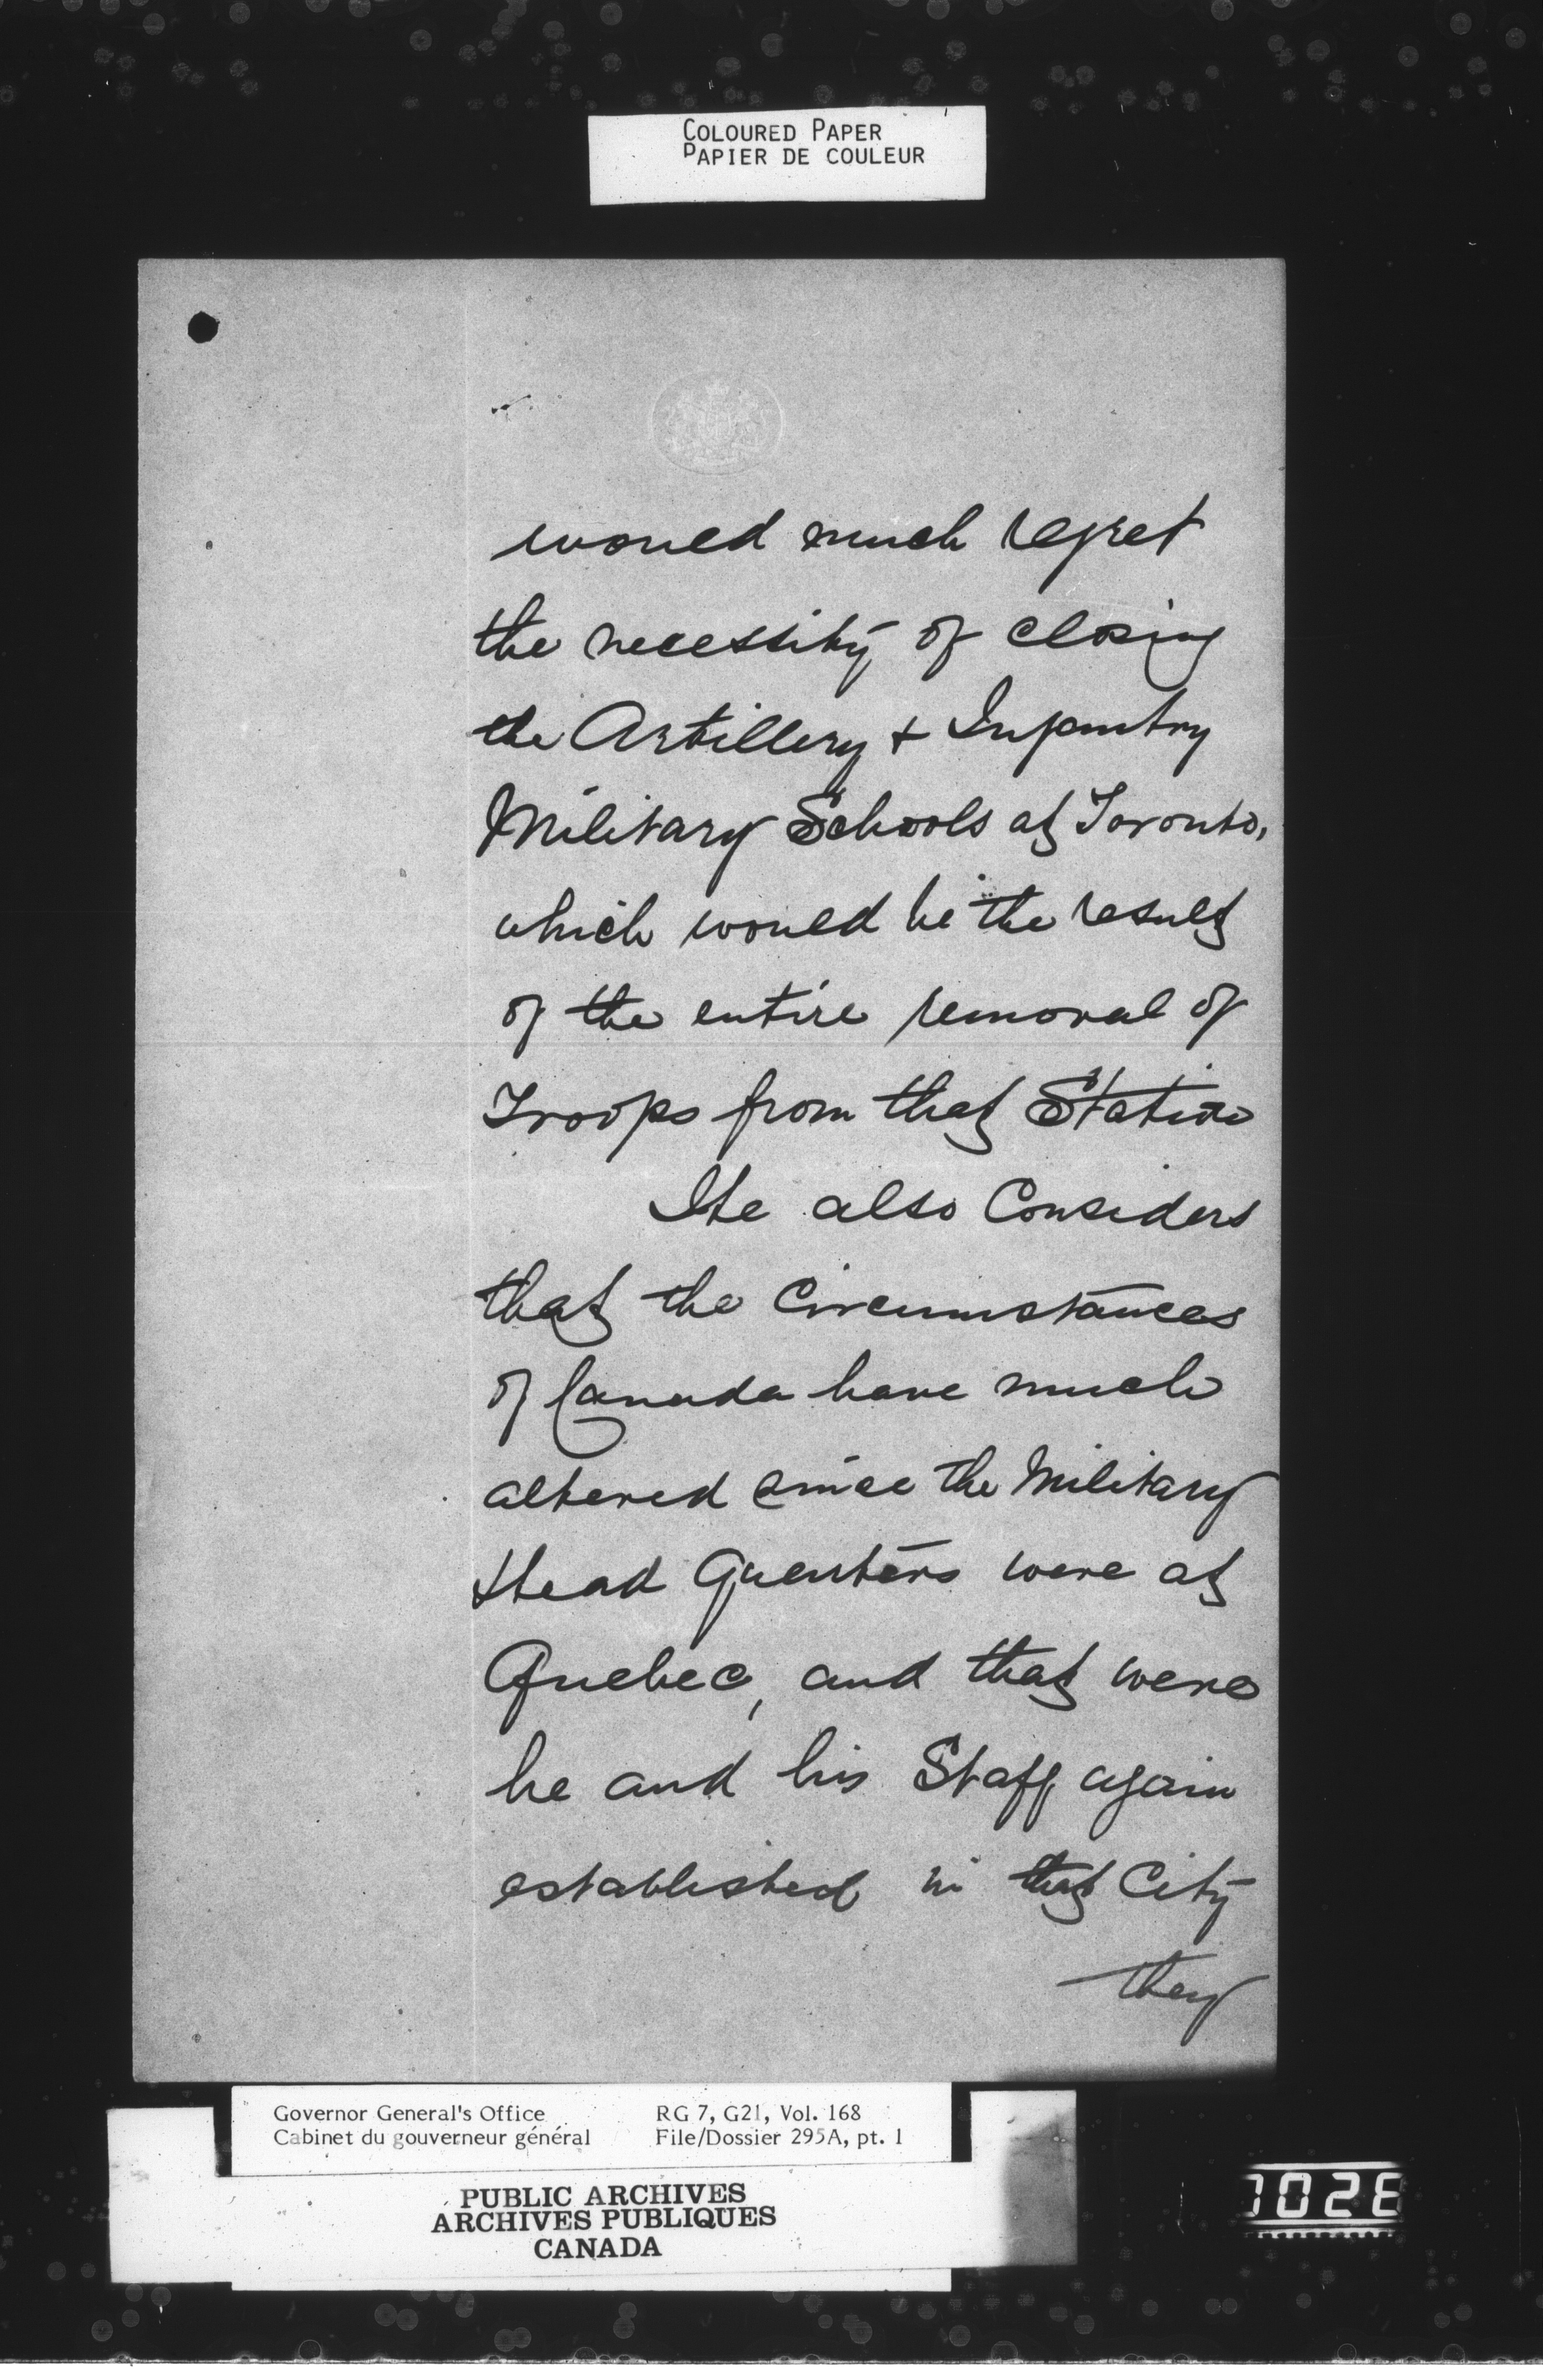 COLOURED PAPER
PAPIER DE COULEUR
would much regret
the necessity of closing
the Artillery + Infantry
Military Schools at Toronto,
which would be the result
of the entire removal of
Troops from that Station
He also Considers
that the Circumstances
of Canada have much
altered since the Military
Head Quarters were at
Quebec, and that were
he and his Staff again
established in that City
they
Governor General's Office RG 7, G21, Vol. 168
Cabinet du gouverneur général File/Dossier 295A, pt. 1
PUBLIC ARCHIVES
ARCHIVES PUBLIQUES
CANADA